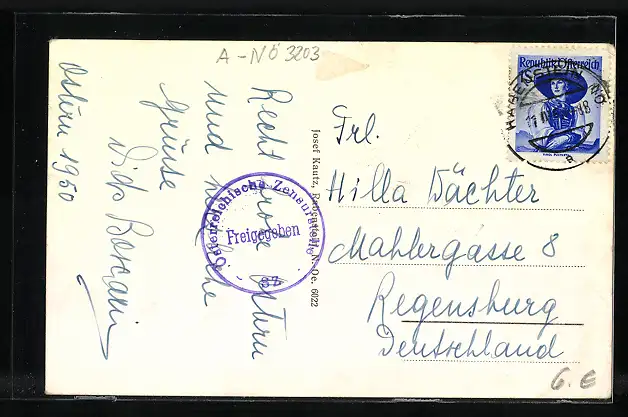 A-NÖ 3203
Ostern 1950
Recht frohe Ostern
und herzliche
Grüsse
Josef Kautz, Rabenstein, N.-Oe. 6022
Österreichische Zensurstelle
Freigegeben
Republik Österreich
Frl.
Hilla Dächter
Mahlergasse 8
Regensburg
Deutschland
G. E